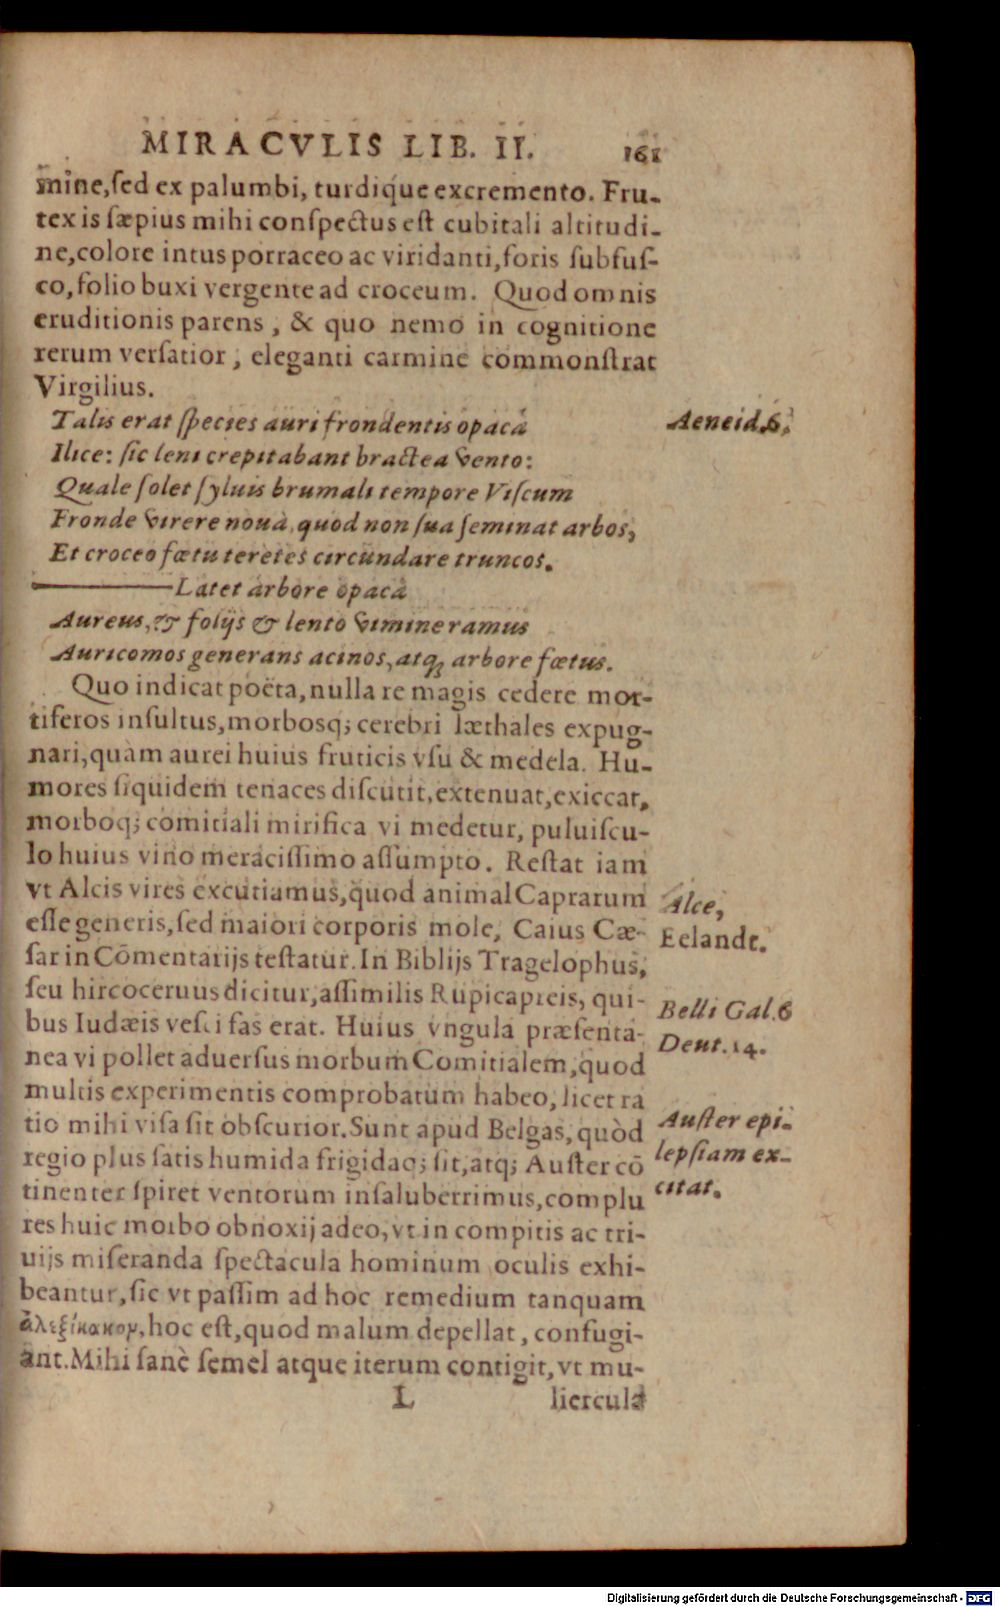 MIRACVLIS LIB. II. 161
mine, ſed ex palumbi, turdique excremento. Fru-
tex is ſæpius mihi conſpectus eſt cubitali altitudi-
ne, colore intus porraceo ac viridanti, foris ſubfuſ-
co, folio buxi vergente ad croceum. Quod omnis
eruditionis parens, & quo nemo in cognitione
rerum verſatior, eleganti carmine commonſtrat
Virgilius.
Talis erat ſpecies auri frondentis opacâ
Aeneid. 6.
Ilice: ſic leni crepitabant bractea vento:
Quale ſolet ſyluis brumali tempore Viſcum
Fronde virere nouâ, quod non ſua ſeminat arbos,
Et croceo fœtu teretes circũndare truncos.
——— Latet arbore opacâ
Aureus, & folijs & lento vimine ramus
Auricomos generans acinos, atq; arbore fœtus.
Quo indicat poëta, nulla re magis cedere mor-
tiferos inſultus, morbosq; cerebri læthales expug-
nari, quàm aurei huius fruticis vſu & medela. Hu-
mores ſiquidem tenaces diſcutit, extenuat, exiccat,
morboq; comitiali mirifica vi medetur, puluiſcu-
lo huius vino meraciſſimo aſſumpto. Reſtat iam
vt Alcis vires excutiamus, quod animal Caprarum
Alce,
eſſe generis, ſed maiori corporis mole, Caius Cæ-
Eelandt.
ſar in Cõmentarijs teſtatur. In Biblijs Tragelophus,
ſeu hircoceruus dicitur, aſſimilis Rupicapreis, qui-
Belli Gal. 6
bus Iudæis veſci fas erat. Huius vngula præſenta-
Deut. 14.
nea vi pollet aduerſus morbum Comitialem, quod
multis experimentis comprobatum habeo, licet ra
tio mihi viſa ſit obſcurior. Sunt apud Belgas, quòd
Auſter epi-
regio plus ſatis humida frigidaq; ſit, atq; Auſter cõ
lepſiam ex-
tinenter ſpiret ventorum inſaluberrimus, complu
citat.
res huic morbo obnoxij adeo, vt in compitis ac tri-
uijs miſeranda ſpectacula hominum oculis exhi-
beantur, ſic vt paſſim ad hoc remedium tanquam
ἀλεξίκακον, hoc eſt, quod malum depellat, confugi-
ant. Mihi ſanè ſemel atque iterum contigit, vt mu-
L liercula
Digitalisierung gefördert durch die Deutsche Forschungsgemeinschaft - DFG